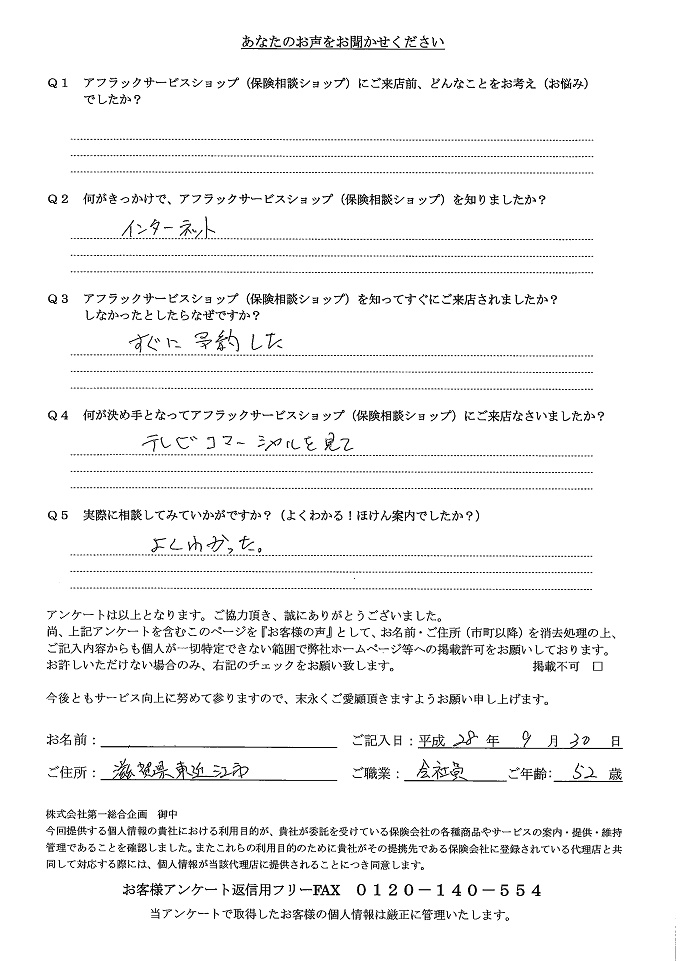 あなたのお声をお聞かせください
Q1 アフラックサービスショップ（保険相談ショップ）にご来店前、どんなことをお考え（お悩み）
でしたか？
Q2 何がきっかけで、アフラックサービスショップ（保険相談ショップ）を知りましたか？
インターネット
Q3 アフラックサービスショップ（保険相談ショップ）を知ってすぐにご来店されましたか？
しなかったとしたらなぜですか？
すぐに予約した
Q4 何が決め手となってアフラックサービスショップ（保険相談ショップ）にご来店なさいましたか？
テレビコマーシャルを見て
Q5 実際に相談してみていかがですか？（よくわかる！ほけん案内でしたか？）
よくわかった。
アンケートは以上となります。ご協力頂き、誠にありがとうございました。
尚、上記アンケートを含むこのページを『お客様の声』として、お名前・ご住所（市町以降）を消去処理の上、
ご記入内容からも個人が一切特定できない範囲で弊社ホームページ等への掲載許可をお願いしております。
お許しいただけない場合のみ、右記のチェックをお願い致します。 掲載不可 □
今後ともサービス向上に努めて参りますので、末永くご愛顧頂きますようお願い申し上げます。
お名前： ご記入日：平成 28 年 9 月 30 日
ご住所： 滋賀県東近江市 ご職業： 会社員 ご年齢： 52 歳
株式会社第一総合企画 御中
今回提供する個人情報の貴社における利用目的が、貴社が委託を受けている保険会社の各種商品やサービスの案内・提供・維持
管理であることを確認しました。またこれらの利用目的のために貴社がその提携先である保険会社に登録されている代理店と共
同して対応する際には、個人情報が当該代理店に提供されることにつき同意します。
お客様アンケート返信用フリーFAX 0120－140－554
当アンケートで取得したお客様の個人情報は厳正に管理いたします。